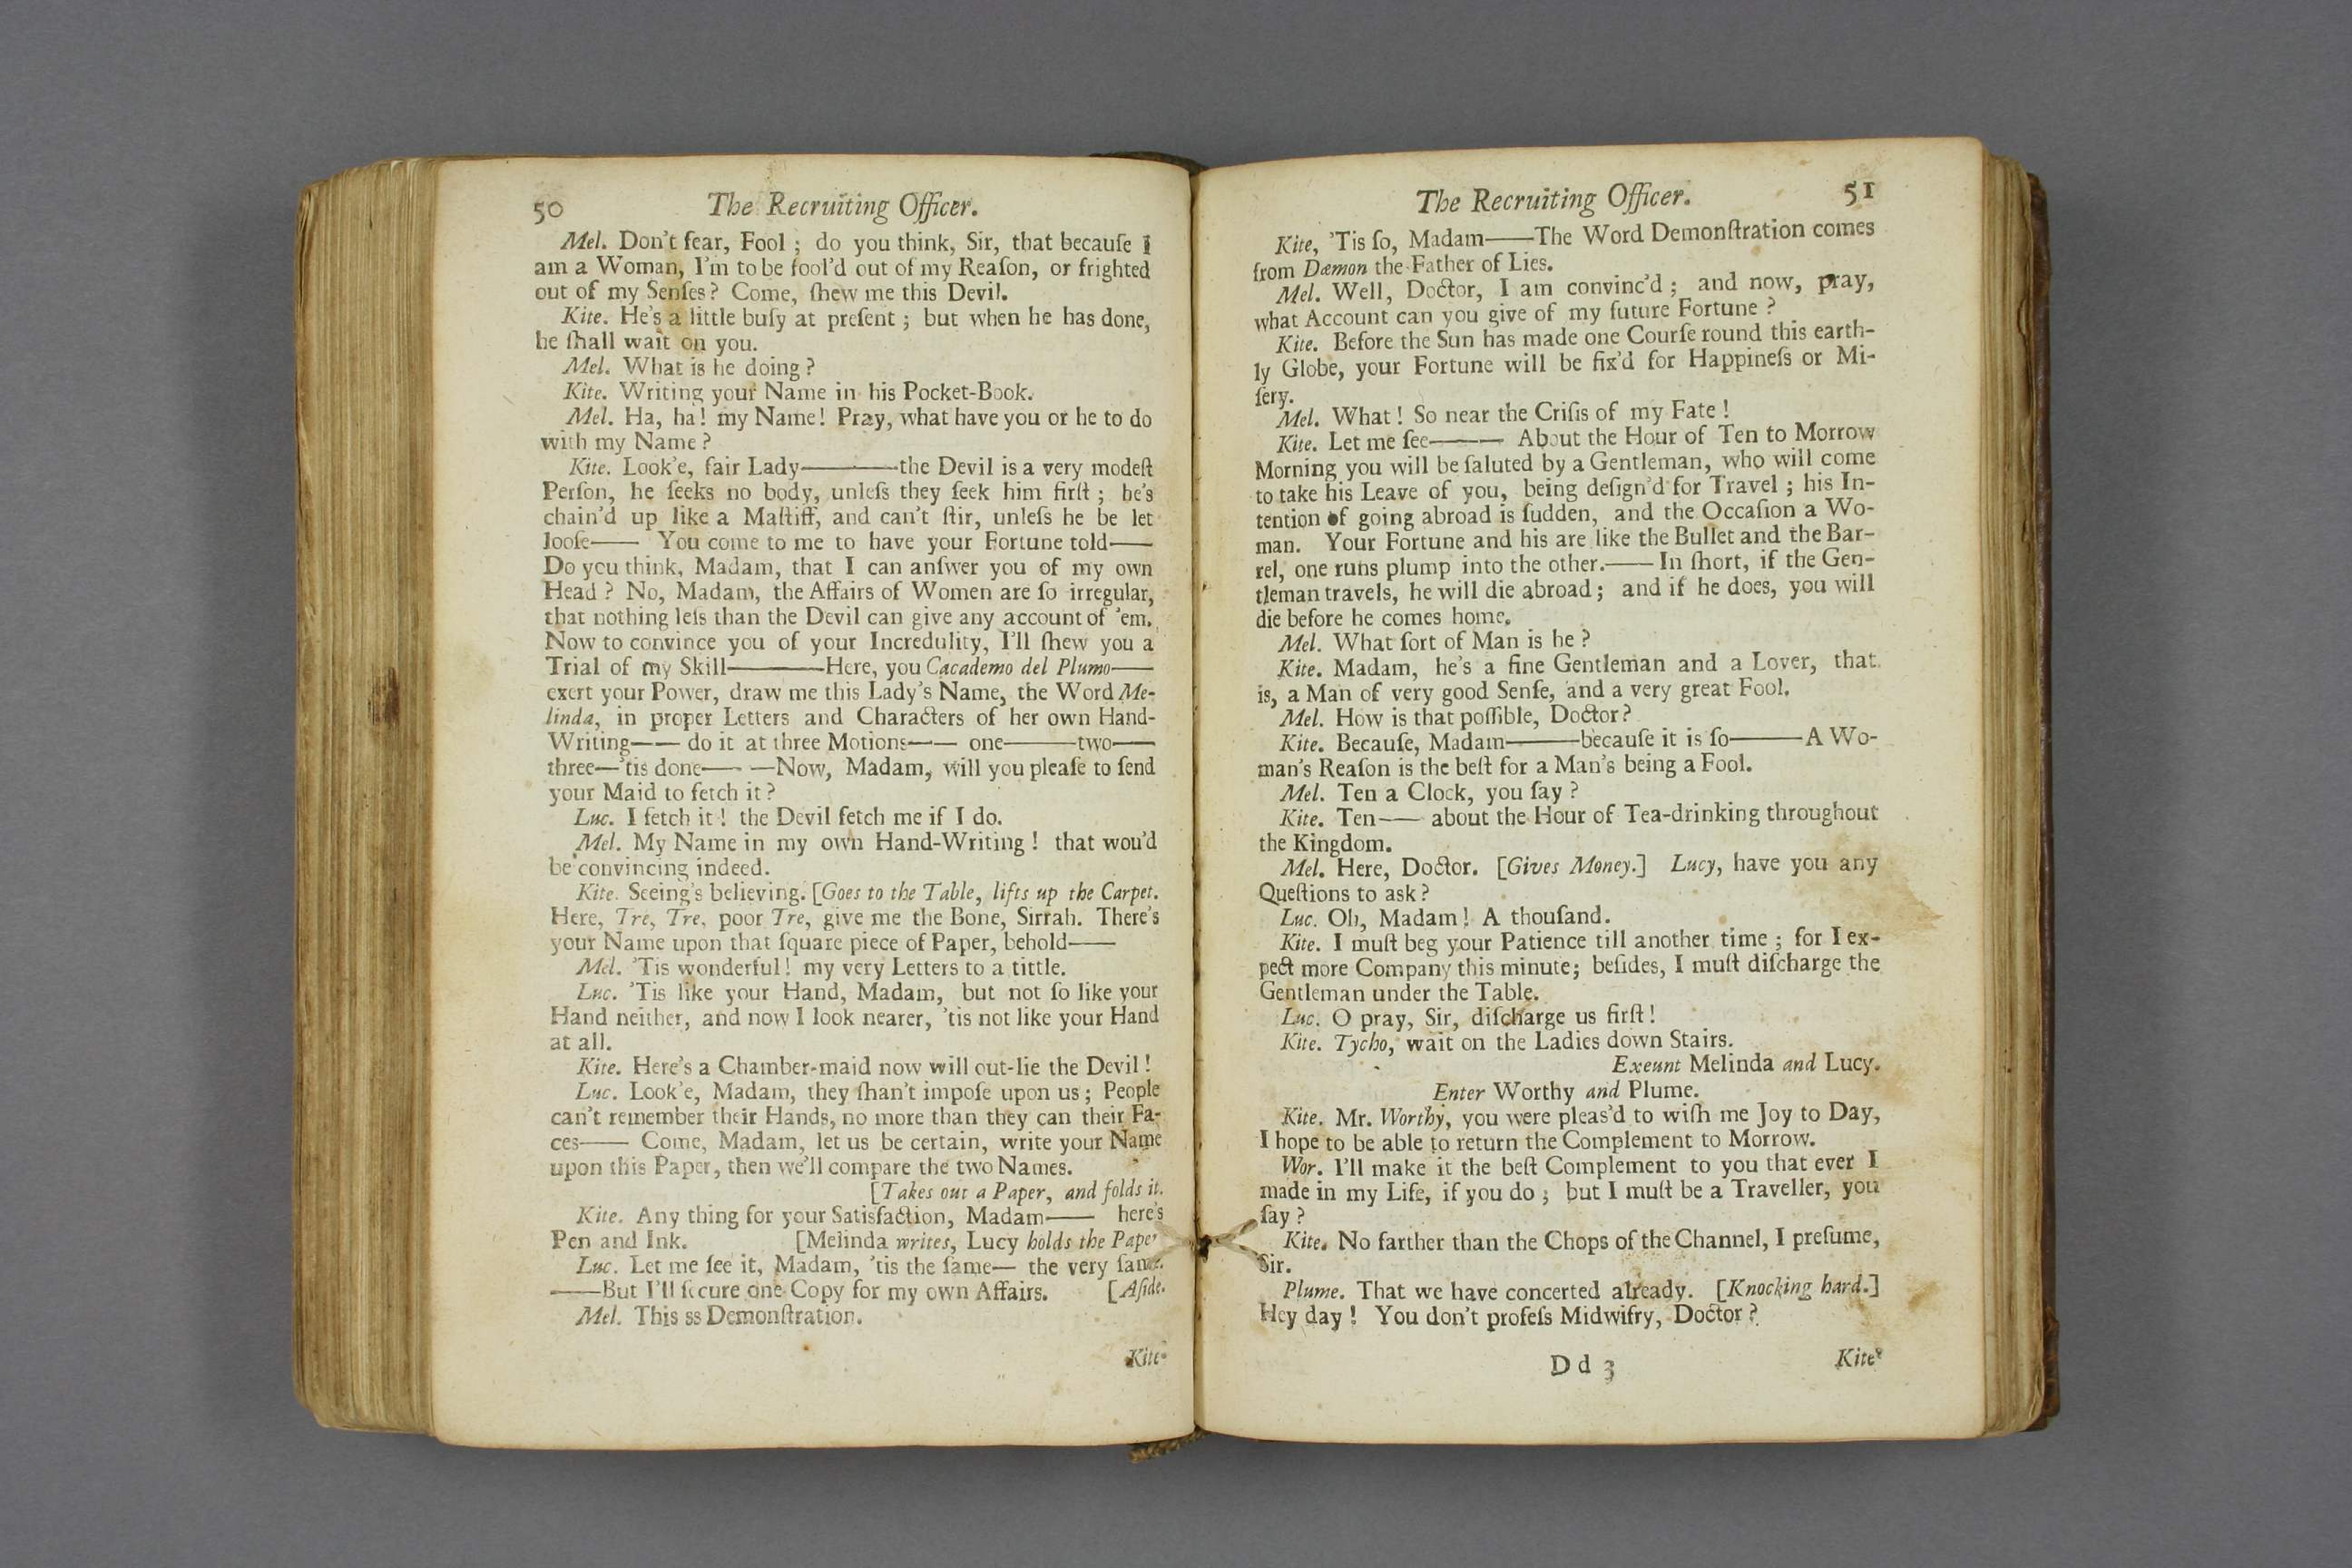 50 The Recruiting Officer.
Mel. Don't fear, Fool ; do you think, Sir, that becauſe I
am a Woman, I'm to be fool'd out of my Reaſon, or frighted
out of my Senſes? Come, ſhew me this Devil.
Kite. He's a little buſy at preſent ; but when he has done,
he ſhall wait on you.
Mel. What is he doing ?
Kite. Writing your Name in his Pocket-Book.
Mel. Ha, ha! my Name! Pray, what have you or he to do
with my Name ?
Kite. Look'e, fair Lady———the Devil is a very modeſt
Perſon, he ſeeks no body, unleſs they ſeek him firſt ; he's
chain'd up like a Maſtiff, and can't ſtir, unleſs he be let
looſe—— You come to me to have your Fortune told——
Do you think, Madam, that I can anſwer you of my own
Head ? No, Madam, the Affairs of Women are ſo irregular,
that nothing leſs than the Devil can give any account of 'em.
Now to convince you of your Incredulity, I'll ſhew you a
Trial of my Skill———Here, you Cacademo del Plumo——
exert your Power, draw me this Lady's Name, the Word Me-
linda, in proper Letters and Characters of her own Hand-
Writing—— do it at three Motions—— one———two——
three—'tis done—— —Now, Madam, will you pleaſe to ſend
your Maid to fetch it ?
Luc. I fetch it ! the Devil fetch me if I do.
Mel. My Name in my own Hand-Writing ! that wou'd
be convincing indeed.
Kite. Seeing's believing. [Goes to the Table, lifts up the Carpet.
Here, Tre, Tre, poor Tre, give me the Bone, Sirrah. There's
your Name upon that ſquare piece of Paper, behold——
Mel. 'Tis wonderful! my very Letters to a tittle.
Luc. 'Tis like your Hand, Madam, but not ſo like your
Hand neither, and now I look nearer, 'tis not like your Hand
at all.
Kite. Here's a Chamber-maid now will out-lie the Devil !
Luc. Look'e, Madam, they ſhan't impoſe upon us ; People
can't remember their Hands, no more than they can their Fa-
ces—— Come, Madam, let us be certain, write your Name
upon this Paper, then we'll compare the two Names.
[Takes out a Paper, and folds it.
Kite. Any thing for your Satisfaction, Madam—— here's
Pen and Ink. [Melinda writes, Lucy holds the Paper
Luc. Let me ſee it, Madam, 'tis the ſame— the very ſame.
——But I'll ſecure one Copy for my own Affairs. [Aſide.
Mel. This ss Demonſtration.
Kite
The Recruiting Officer. 51
Kite, 'Tis ſo, Madam——The Word Demonſtration comes
from Dæmon the Father of Lies.
Mel. Well, Doctor, I am convinc'd ; and now, pray,
what Account can you give of my future Fortune ?
Kite. Before the Sun has made one Courſe round this earth-
ly Globe, your Fortune will be fix'd for Happineſs or Mi-
ſery.
Mel. What ! So near the Criſis of my Fate !
Kite. Let me ſee——— About the Hour of Ten to Morrow
Morning you will be ſaluted by a Gentleman, who will come
to take his Leave of you, being deſign'd for Travel ; his In-
tention of going abroad is ſudden, and the Occaſion a Wo-
man. Your Fortune and his are like the Bullet and the Bar-
rel, one runs plump into the other.—— In ſhort, if the Gen-
tleman travels, he will die abroad ; and if he does, you will
die before he comes home.
Mel. What ſort of Man is he ?
Kite. Madam, he's a fine Gentleman and a Lover, that
is, a Man of very good Senſe, and a very great Fool.
Mel. How is that poſſible, Doctor ?
Kite. Becauſe, Madam———becauſe it is ſo———A Wo-
man's Reaſon is the beſt for a Man's being a Fool.
Mel. Ten a Clock, you ſay ?
Kite. Ten—— about the Hour of Tea-drinking throughout
the Kingdom.
Mel. Here, Doctor. [Gives Money.] Lucy, have you any
Queſtions to ask ?
Luc. Oh, Madam ! A thouſand.
Kite. I muſt beg your Patience till another time ; for I ex-
pect more Company this minute; beſides, I muſt diſcharge the
Gentleman under the Table.
Luc. O pray, Sir, diſcharge us firſt !
Kite. Tycho, wait on the Ladies down Stairs.
Exeunt Melinda and Lucy.
Enter Worthy and Plume.
Kite. Mr. Worthy, you were pleas'd to wiſh me Joy to Day,
I hope to be able to return the Complement to Morrow.
Wor. I'll make it the beſt Complement to you that ever I
made in my Life, if you do ; but I muſt be a Traveller, you
ſay ?
Kite. No farther than the Chops of the Channel, I preſume,
Sir.
Plume. That we have concerted already. [Knocking hard.]
Hey day ! You don't profeſs Midwifry, Doctor ?
D d 3 Kite